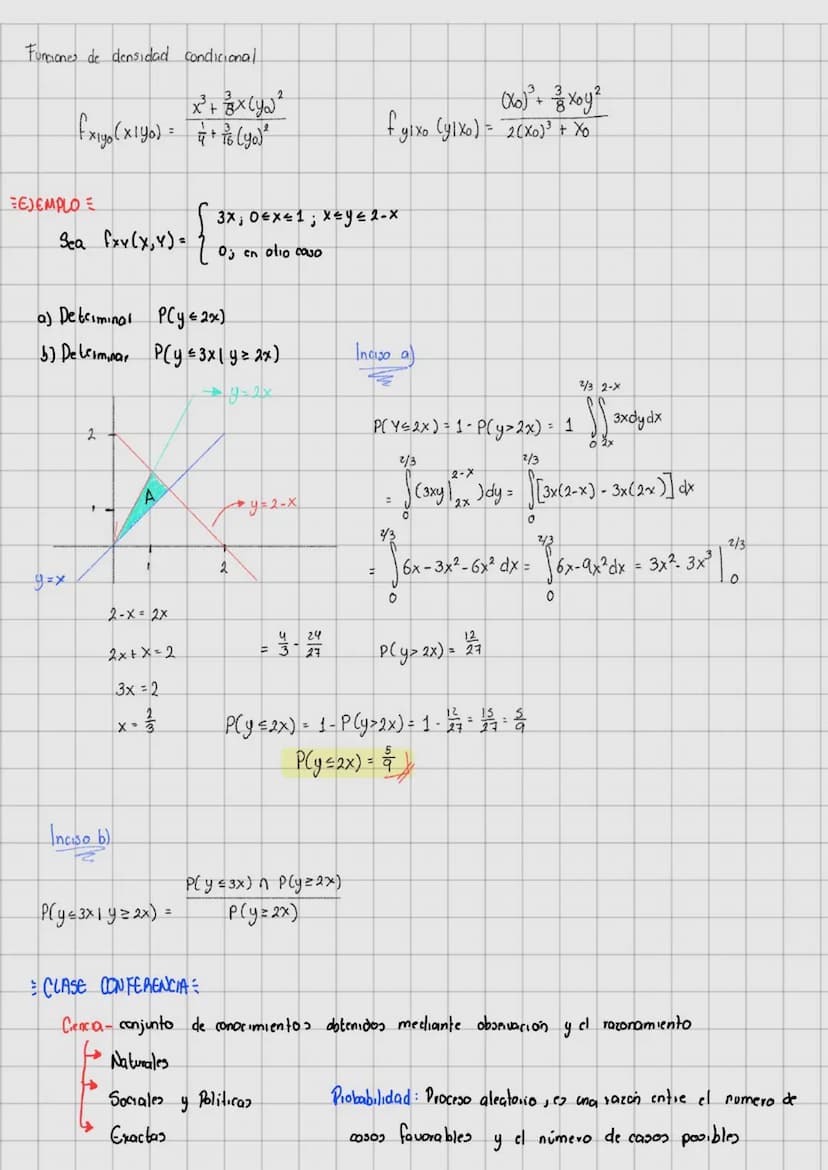 Funciones de densidad condicional
f x|y₀ (x|y₀) = (x³ + 3/8 x(y₀)²) / (1/4 + 3/16 (y₀)²)
f y|x₀ (y|x₀) = ((x₀)³ + 3/8 x₀y²) / (2(x₀)³ + x₀)
EJEMPLO
Sea fxy(x,y) = { 3x; 0≤x≤1; x≤y≤2-x
0; en otro caso
a) Determinar P(y≤2x)
b) Determinar P(y≤3x | y≥2x)
Inciso a)
y=2x
2
A
1
y=2-x
y=x
1
2
P(Y≤2x) = 1 - P(y>2x) = 1 ∫₀^2/3 ∫₂ₓ^2-x 3xdydx
= ∫₀^2/3 (3xy |₂ₓ^2-x )dy = ∫₀^2/3 [3x(2-x) - 3x(2x)] dx
= ∫₀^2/3 6x - 3x² - 6x² dx = ∫₀^2/3 6x - 9x² dx = 3x² - 3x³ |₀^2/3
2-x = 2x
2x + x = 2
3x = 2
x = 2/3
= 4/3 - 24/27
P(y>2x) = 12/27
P(y≤2x) = 1 - P(y>2x) = 1 - 12/27 = 15/27 = 5/9
P(y≤2x) = 5/9
Inciso b)
P(y≤3x | y≥2x) = P(y≤3x) ∩ P(y≥2x) / P(y≥2x)
CLASE CONFERENCIA
Cenca - conjunto de conocimientos obtenidos mediante observación y el razonamiento
Naturales
Sociales y Políticas
Exactas
Probabilidad: Proceso aleatorio, es una razón entre el numero de
casos favorables y el número de casos posibles